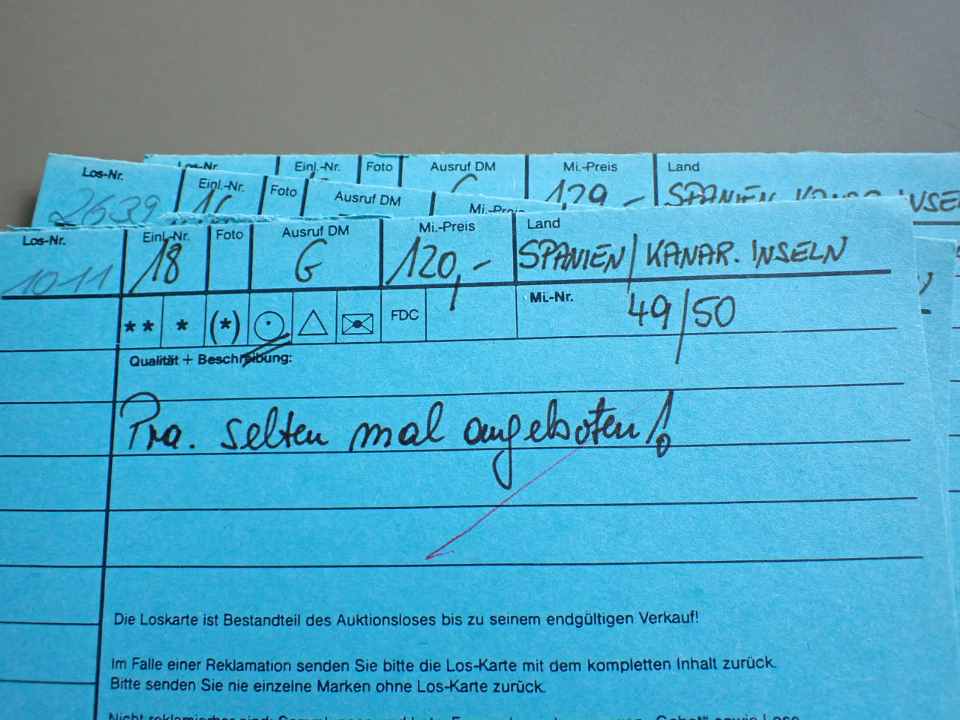 Los-Nr. Einl.-Nr. Foto Ausruf DM Mi.-Preis Land
129,- SPANIEN KANAR. INSEL
Los-Nr. Einl.-Nr. Foto Ausruf DM Mi.-Preis
2639 16
Los-Nr. Einl.-Nr. Foto Ausruf DM Mi.-Preis Land
1011 18 G 120,- SPANIEN/KANAR. INSELN
** * (*) FDC Mi.-Nr. 49/50
Qualität + Beschreibung:
Pra. selten mal angeboten!
Die Loskarte ist Bestandteil des Auktionsloses bis zu seinem endgültigen Verkauf!
Im Falle einer Reklamation senden Sie bitte die Los-Karte mit dem kompletten Inhalt zurück.
Bitte senden Sie nie einzelne Marken ohne Los-Karte zurück.